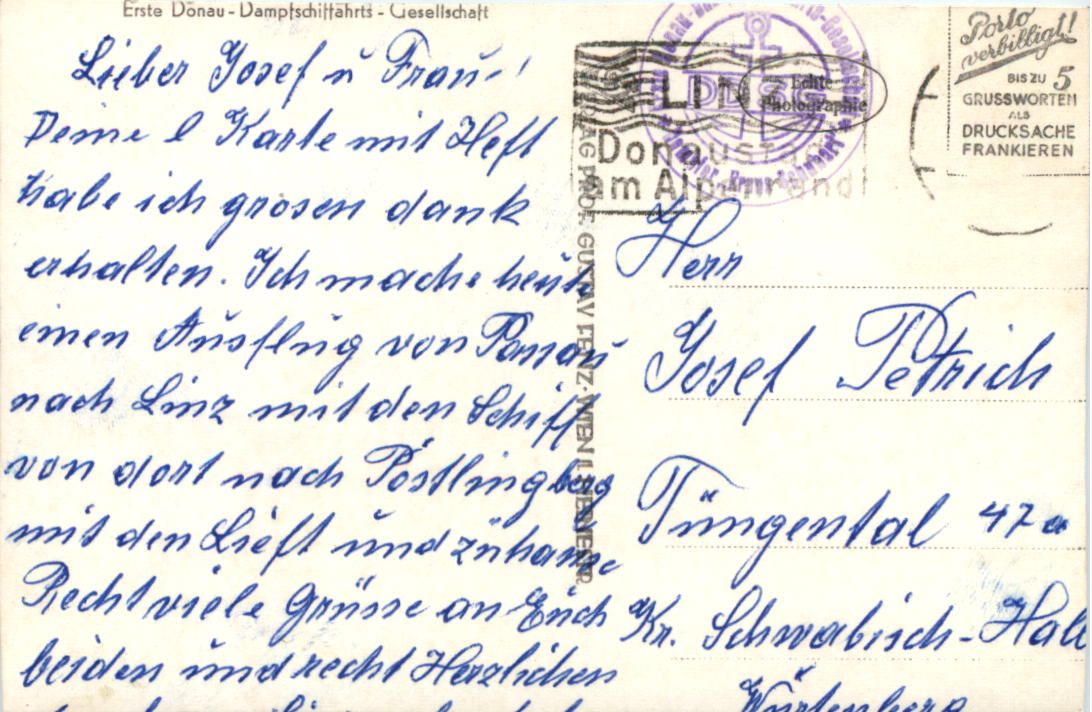 Erste Donau-Dampfschiffahrts-Gesellschaft
Lieber Josef u Frau!
Deine l Karte mit Heft
habe ich grosen dank
erhalten. Ich mache heute
einen Ausflug von Passau
nach Linz mit den Schiff
von dort nach Pöstlingberg
mit den Lieft und zuhause
Recht viele Grüsse an Euch
beiden und recht Herzlichen
VERLAG PROF. GUSTAV FENZ. WIEN
LINZ
Donaustadt
am Alpenrand
DDSG
Echte
Photographie
Porto
verbilligt!
BIS ZU 5
GRUSSWORTEN
ALS
DRUCKSACHE
FRANKIEREN
Herr
Josef Petrich
Tüngental 47a
Kr. Schwäbisch-Hall
Würtenberg